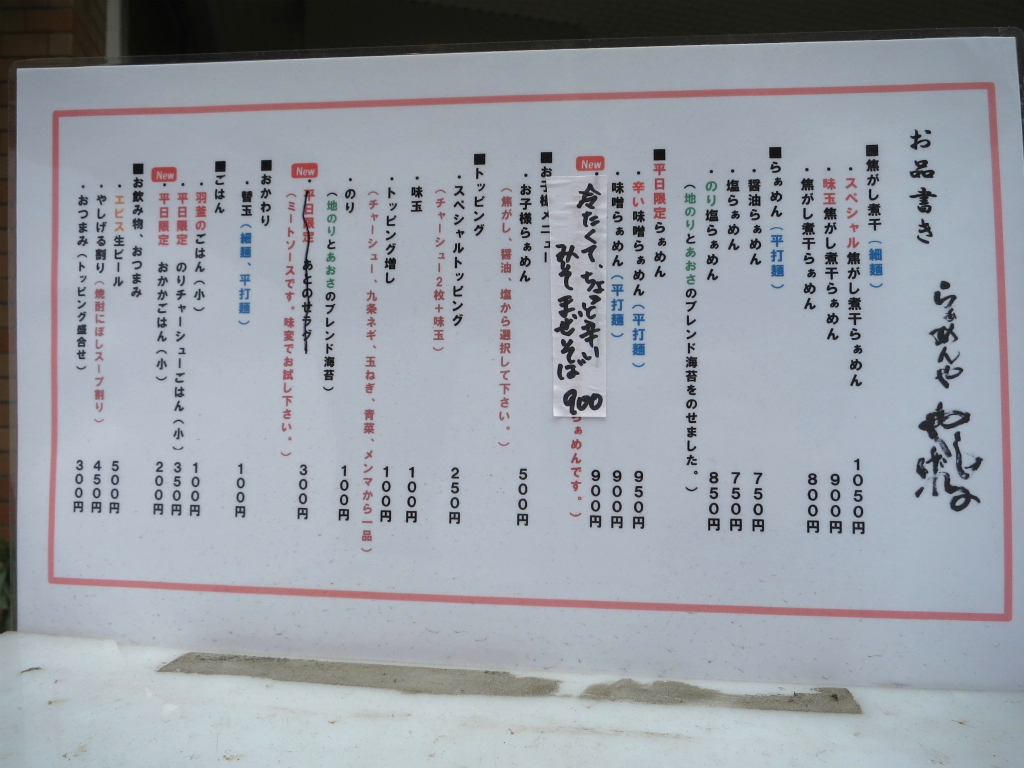 お品書き
らぁめんや やしげる
■焦がし煮干(細麺)
・スペシャル焦がし煮干らぁめん 1050円
・味玉焦がし煮干らぁめん 900円
・焦がし煮干らぁめん 800円
■らぁめん(平打麺)
・醤油らぁめん 750円
・塩らぁめん 750円
・のり塩らぁめん 850円
(地のりとあおさのブレンド海苔をのせました。)
■平日限定らぁめん
・辛い味噌らぁめん(平打麺) 950円
・味噌らぁめん(平打麺) 900円
New
冷たくて、ちょっと辛い
みそまぜそば 900
900円
らぁめんです。)
■お子様メニュー
・お子様らぁめん 500円
(焦がし、醤油、塩から選択して下さい。)
■トッピング
・スペシャルトッピング 250円
(チャーシュー2枚+味玉)
・味玉 100円
・トッピング増し 100円
(チャーシュー、九条ネギ、玉ねぎ、青菜、メンマから一品)
・のり 100円
(地のりとあおさのブレンド海苔)
New
・平日限定 あとのせラグー 300円
(ミートソースです。味変でお試し下さい。)
■おかわり
・替玉(細麺、平打麺) 100円
■ごはん
・羽釜のごはん(小) 100円
・平日限定 のりチャーシューごはん(小) 350円
New
・平日限定 おかかごはん(小) 200円
■お飲み物、おつまみ
・エビス生ビール 500円
・やしげる割り(焼酎にぼしスープ割り) 450円
・おつまみ(トッピング盛合せ) 300円